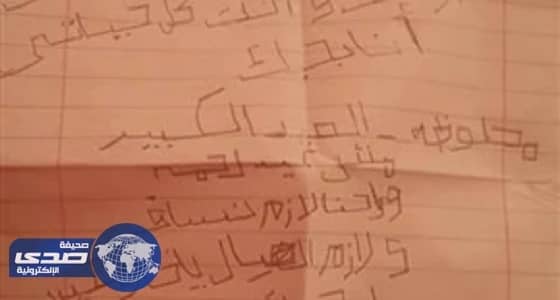 وانت كل حياتي
أنا بحبك
محلوظه - العيد الكبير
مش عيد لحمه
واحنا لازم نساة
ولازم العيال
صحيفة
صدى
الإلكترونية